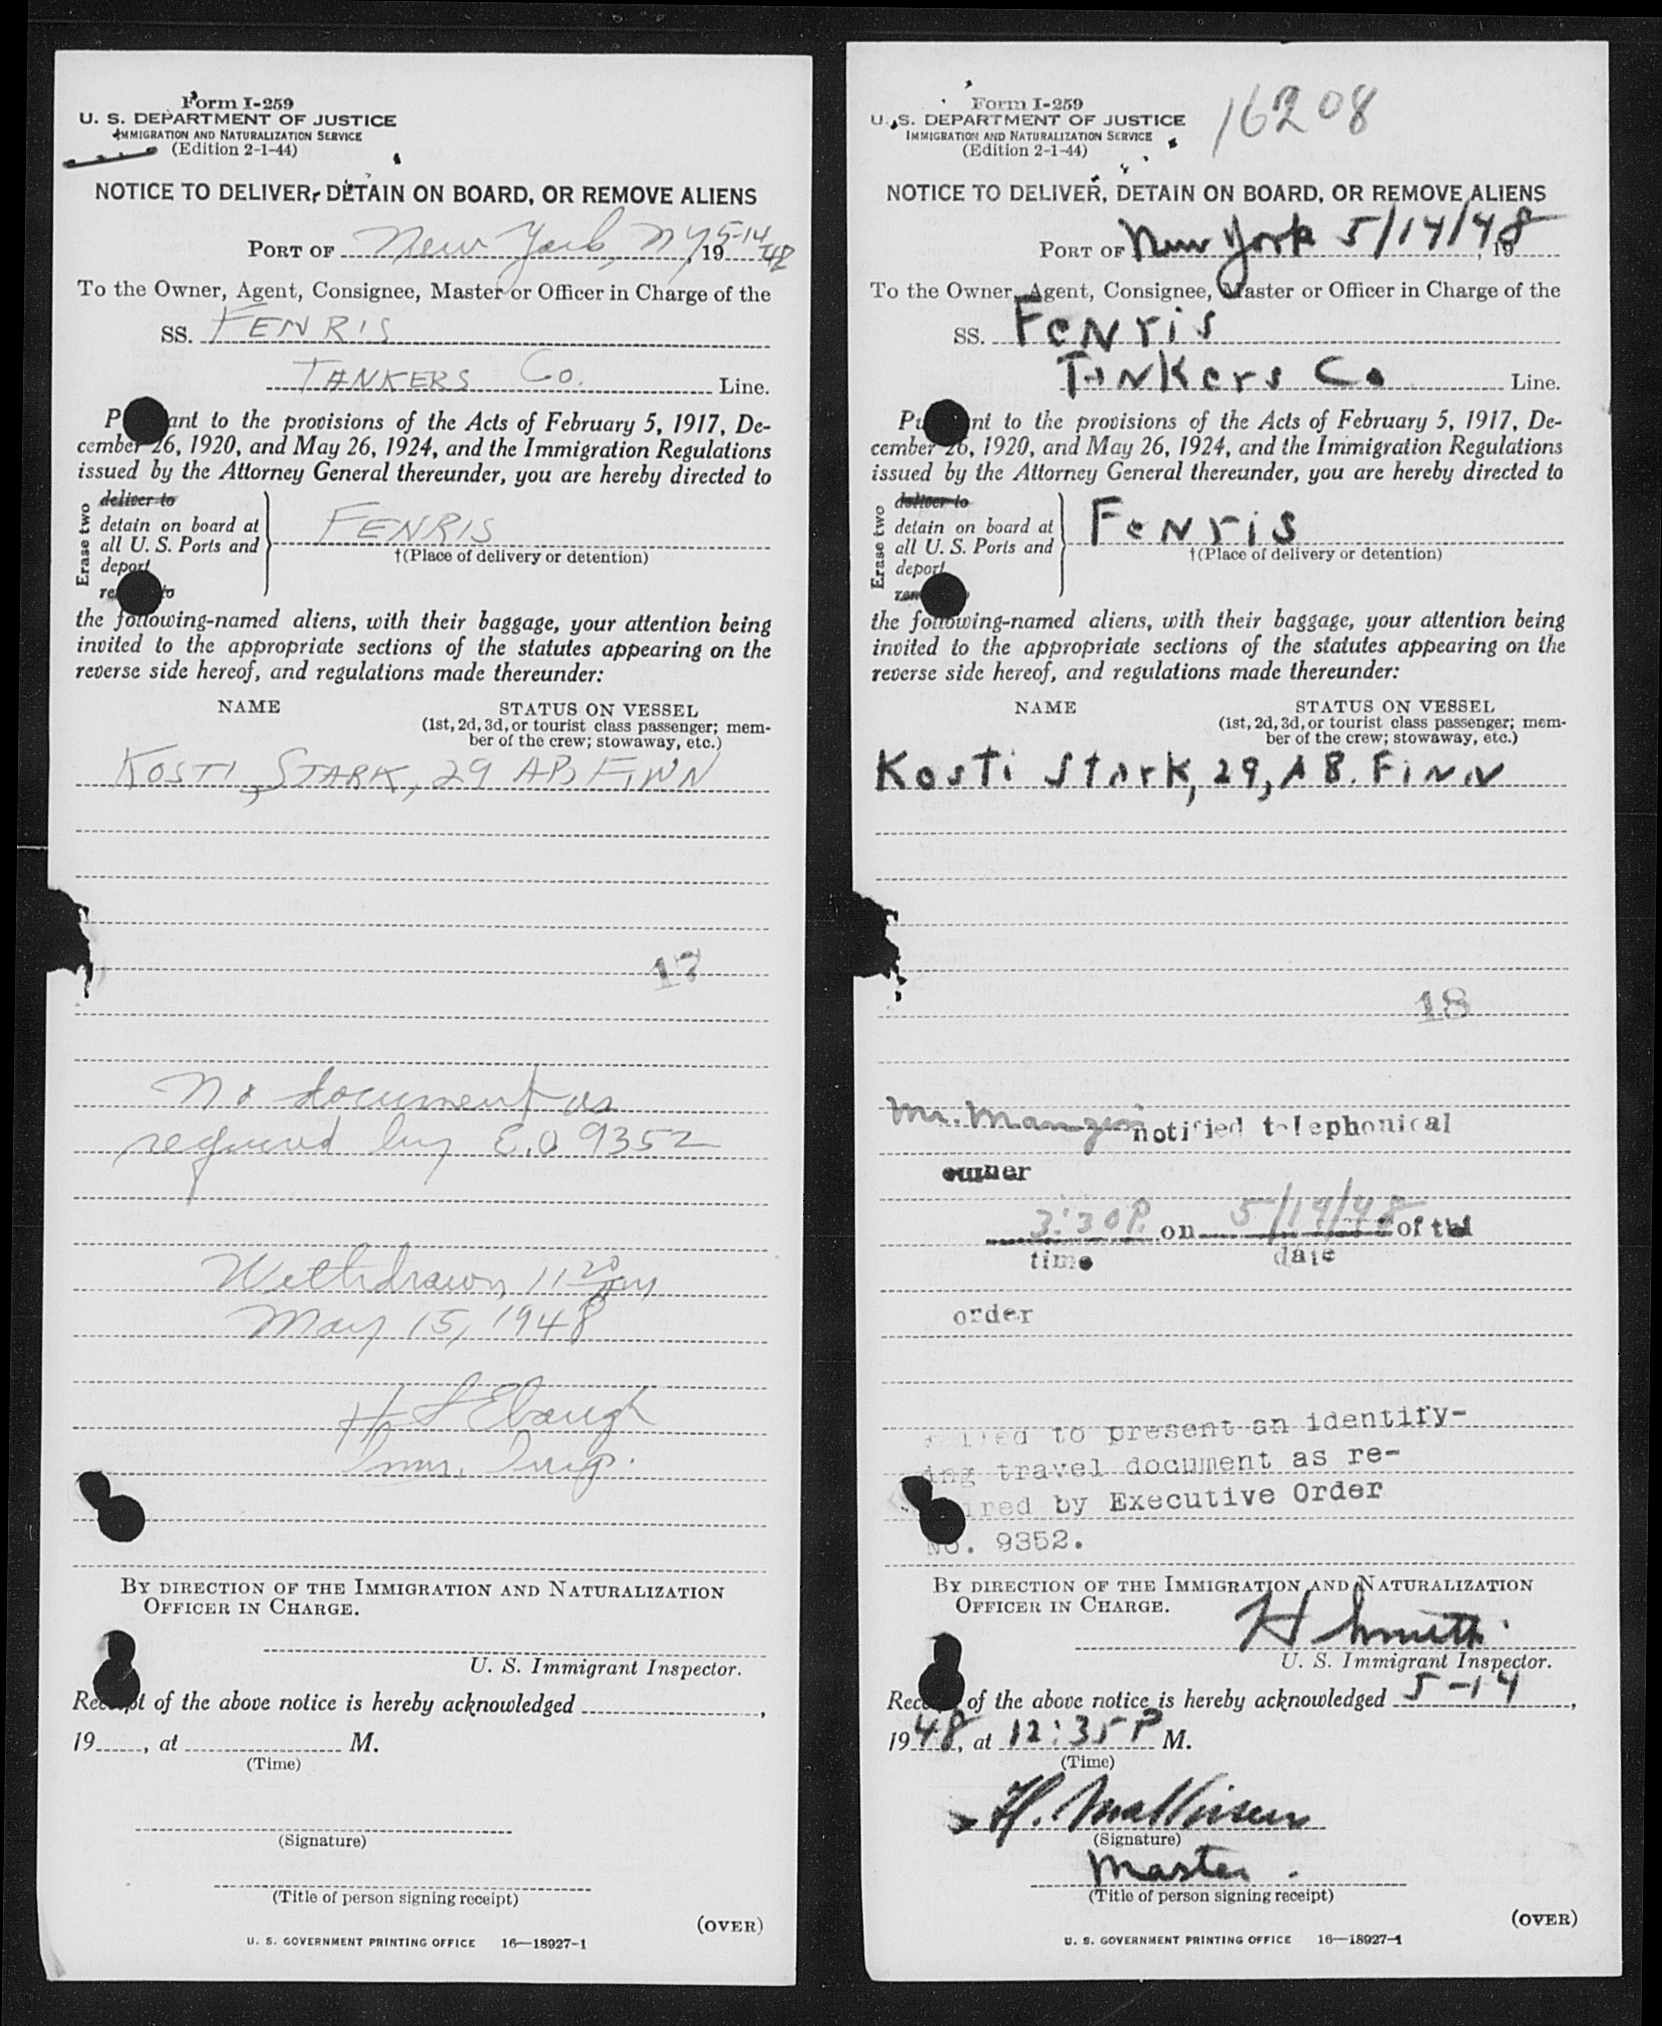 Form I-259
U. S. DEPARTMENT OF JUSTICE
IMMIGRATION AND NATURALIZATION SERVICE
(Edition 2-1-44)
NOTICE TO DELIVER, DETAIN ON BOARD, OR REMOVE ALIENS
PORT OF New York, NY, 19 5-14 48
To the Owner, Agent, Consignee, Master or Officer in Charge of the
SS. FENRIS
TANKERS Co. Line.
P ant to the provisions of the Acts of February 5, 1917, De-
cember 26, 1920, and May 26, 1924, and the Immigration Regulations
issued by the Attorney General thereunder, you are hereby directed to
Erase two
deliver to
detain on board at
all U. S. Ports and
deport
FENRIS
†(Place of delivery or detention)
the following-named aliens, with their baggage, your attention being
invited to the appropriate sections of the statutes appearing on the
reverse side hereof, and regulations made thereunder:
NAME STATUS ON VESSEL
(1st, 2d, 3d, or tourist class passenger; mem-
ber of the crew; stowaway, etc.)
KOSTI, STARK, 29 AB FINN
17
No document as
required by E.O 9352
Withdrawn, 11 20 am
May 15, 1948
H S Ebaugh
Imm. Insp.
BY DIRECTION OF THE IMMIGRATION AND NATURALIZATION
OFFICER IN CHARGE.
U. S. Immigrant Inspector.
Receipt of the above notice is hereby acknowledged ,
19 , at M.
(Time)
(Signature)
(Title of person signing receipt)
(OVER)
U. S. GOVERNMENT PRINTING OFFICE 16—18927-1
Form I-259
16208
U. S. DEPARTMENT OF JUSTICE
IMMIGRATION AND NATURALIZATION SERVICE
(Edition 2-1-44)
NOTICE TO DELIVER, DETAIN ON BOARD, OR REMOVE ALIENS
PORT OF New York 5/14/48, 19
To the Owner, Agent, Consignee, Master or Officer in Charge of the
SS. Fenris
Tankers Co Line.
Pu nt to the provisions of the Acts of February 5, 1917, De-
cember 26, 1920, and May 26, 1924, and the Immigration Regulations
issued by the Attorney General thereunder, you are hereby directed to
Erase two
deliver to
detain on board at
all U. S. Ports and
deport
Fenris
†(Place of delivery or detention)
the following-named aliens, with their baggage, your attention being
invited to the appropriate sections of the statutes appearing on the
reverse side hereof, and regulations made thereunder:
NAME STATUS ON VESSEL
(1st, 2d, 3d, or tourist class passenger; mem-
ber of the crew; stowaway, etc.)
Kosti Stark, 29, AB. Finn
18
Mr. notified telephonical
owner
3:30P. on 5/14/48 of
time date
order
to present an identify-
ing travel document as re-
ired by Executive Order
No. 9352.
BY DIRECTION OF THE IMMIGRATION AND NATURALIZATION
OFFICER IN CHARGE.
H Smith
U. S. Immigrant Inspector.
Rece of the above notice is hereby acknowledged 5-14,
1948, at 12:35 P M.
(Time)
H.
(Signature)
Master.
(Title of person signing receipt)
(OVER)
U. S. GOVERNMENT PRINTING OFFICE 16—18927-1